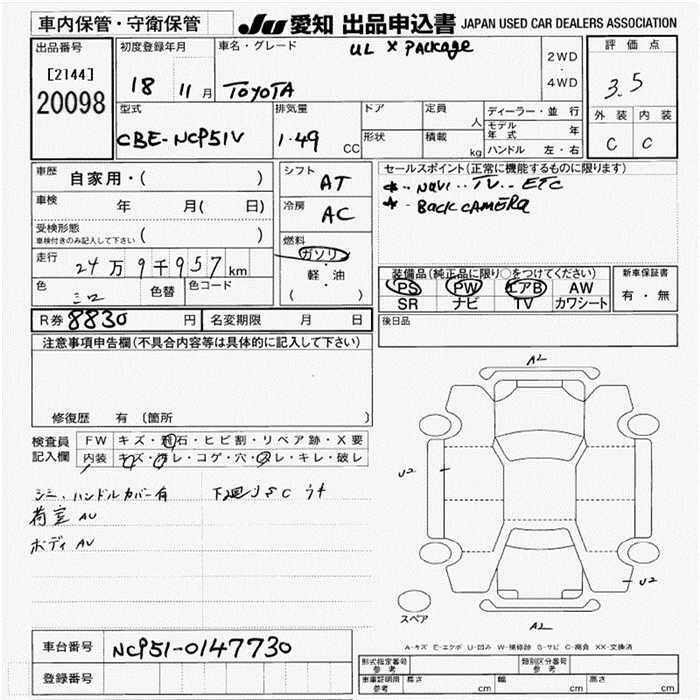 車内保管・守衛保管
JU 愛知 出品申込書 JAPAN USED CAR DEALERS ASSOCIATION
出品番号
[2144]
20098
初度登録年月
18 11月
車名・グレード
UL X PACKAGE
TOYOTA
2WD
・
4WD
評価点
3.5
外装 内装
C C
型式
CBE-NCP51V
排気量
1.49 CC
ドア
形状
定員
人
積載
kg
ディーラー・並行
モデル年式 年
ハンドル 左・右
車歴 自家用・( )
車検 年 月( 日)
受検形態
車検付きのみ記入して下さい ( )
走行 24万9千957km
色 シロ 色替 色コード
シフト AT
冷房 AC
燃料
ガソリン
軽・油
( )
セールスポイント(正常に機能するものに限ります)
*・NAVI・・TV・・ETC
*・BACK CAMERA
装備品(純正品に限り○をつけてください)
PS PW エアB AW
SR ナビ TV カワシート
新車保証書
有・無
R券 8830 円 名変期限 月 日
後日品
注意事項申告欄(不具合内容等は具体的に記入して下さい)
修復歴 有 (箇所 )
検査員
記入欄
FW キズ・飛石・ヒビ割・リペア跡・X要
内装 キズ・汚レ・コゲ・穴・スレ・キレ・破レ
シミ、ハンドルカバー有 下廻りSC
荷室 AU
ボディ AU
A2
U2
U2
A2
スペア
A-キズ E-エクボ U-凹み W-補修跡 S-サビ C-腐食 XX-交換済
車台番号 NCP51-0147730
登録番号
形式指定番号
参考
類別区分番号
参考
車庫証明用
参考
長さ cm 幅 cm 高さ cm